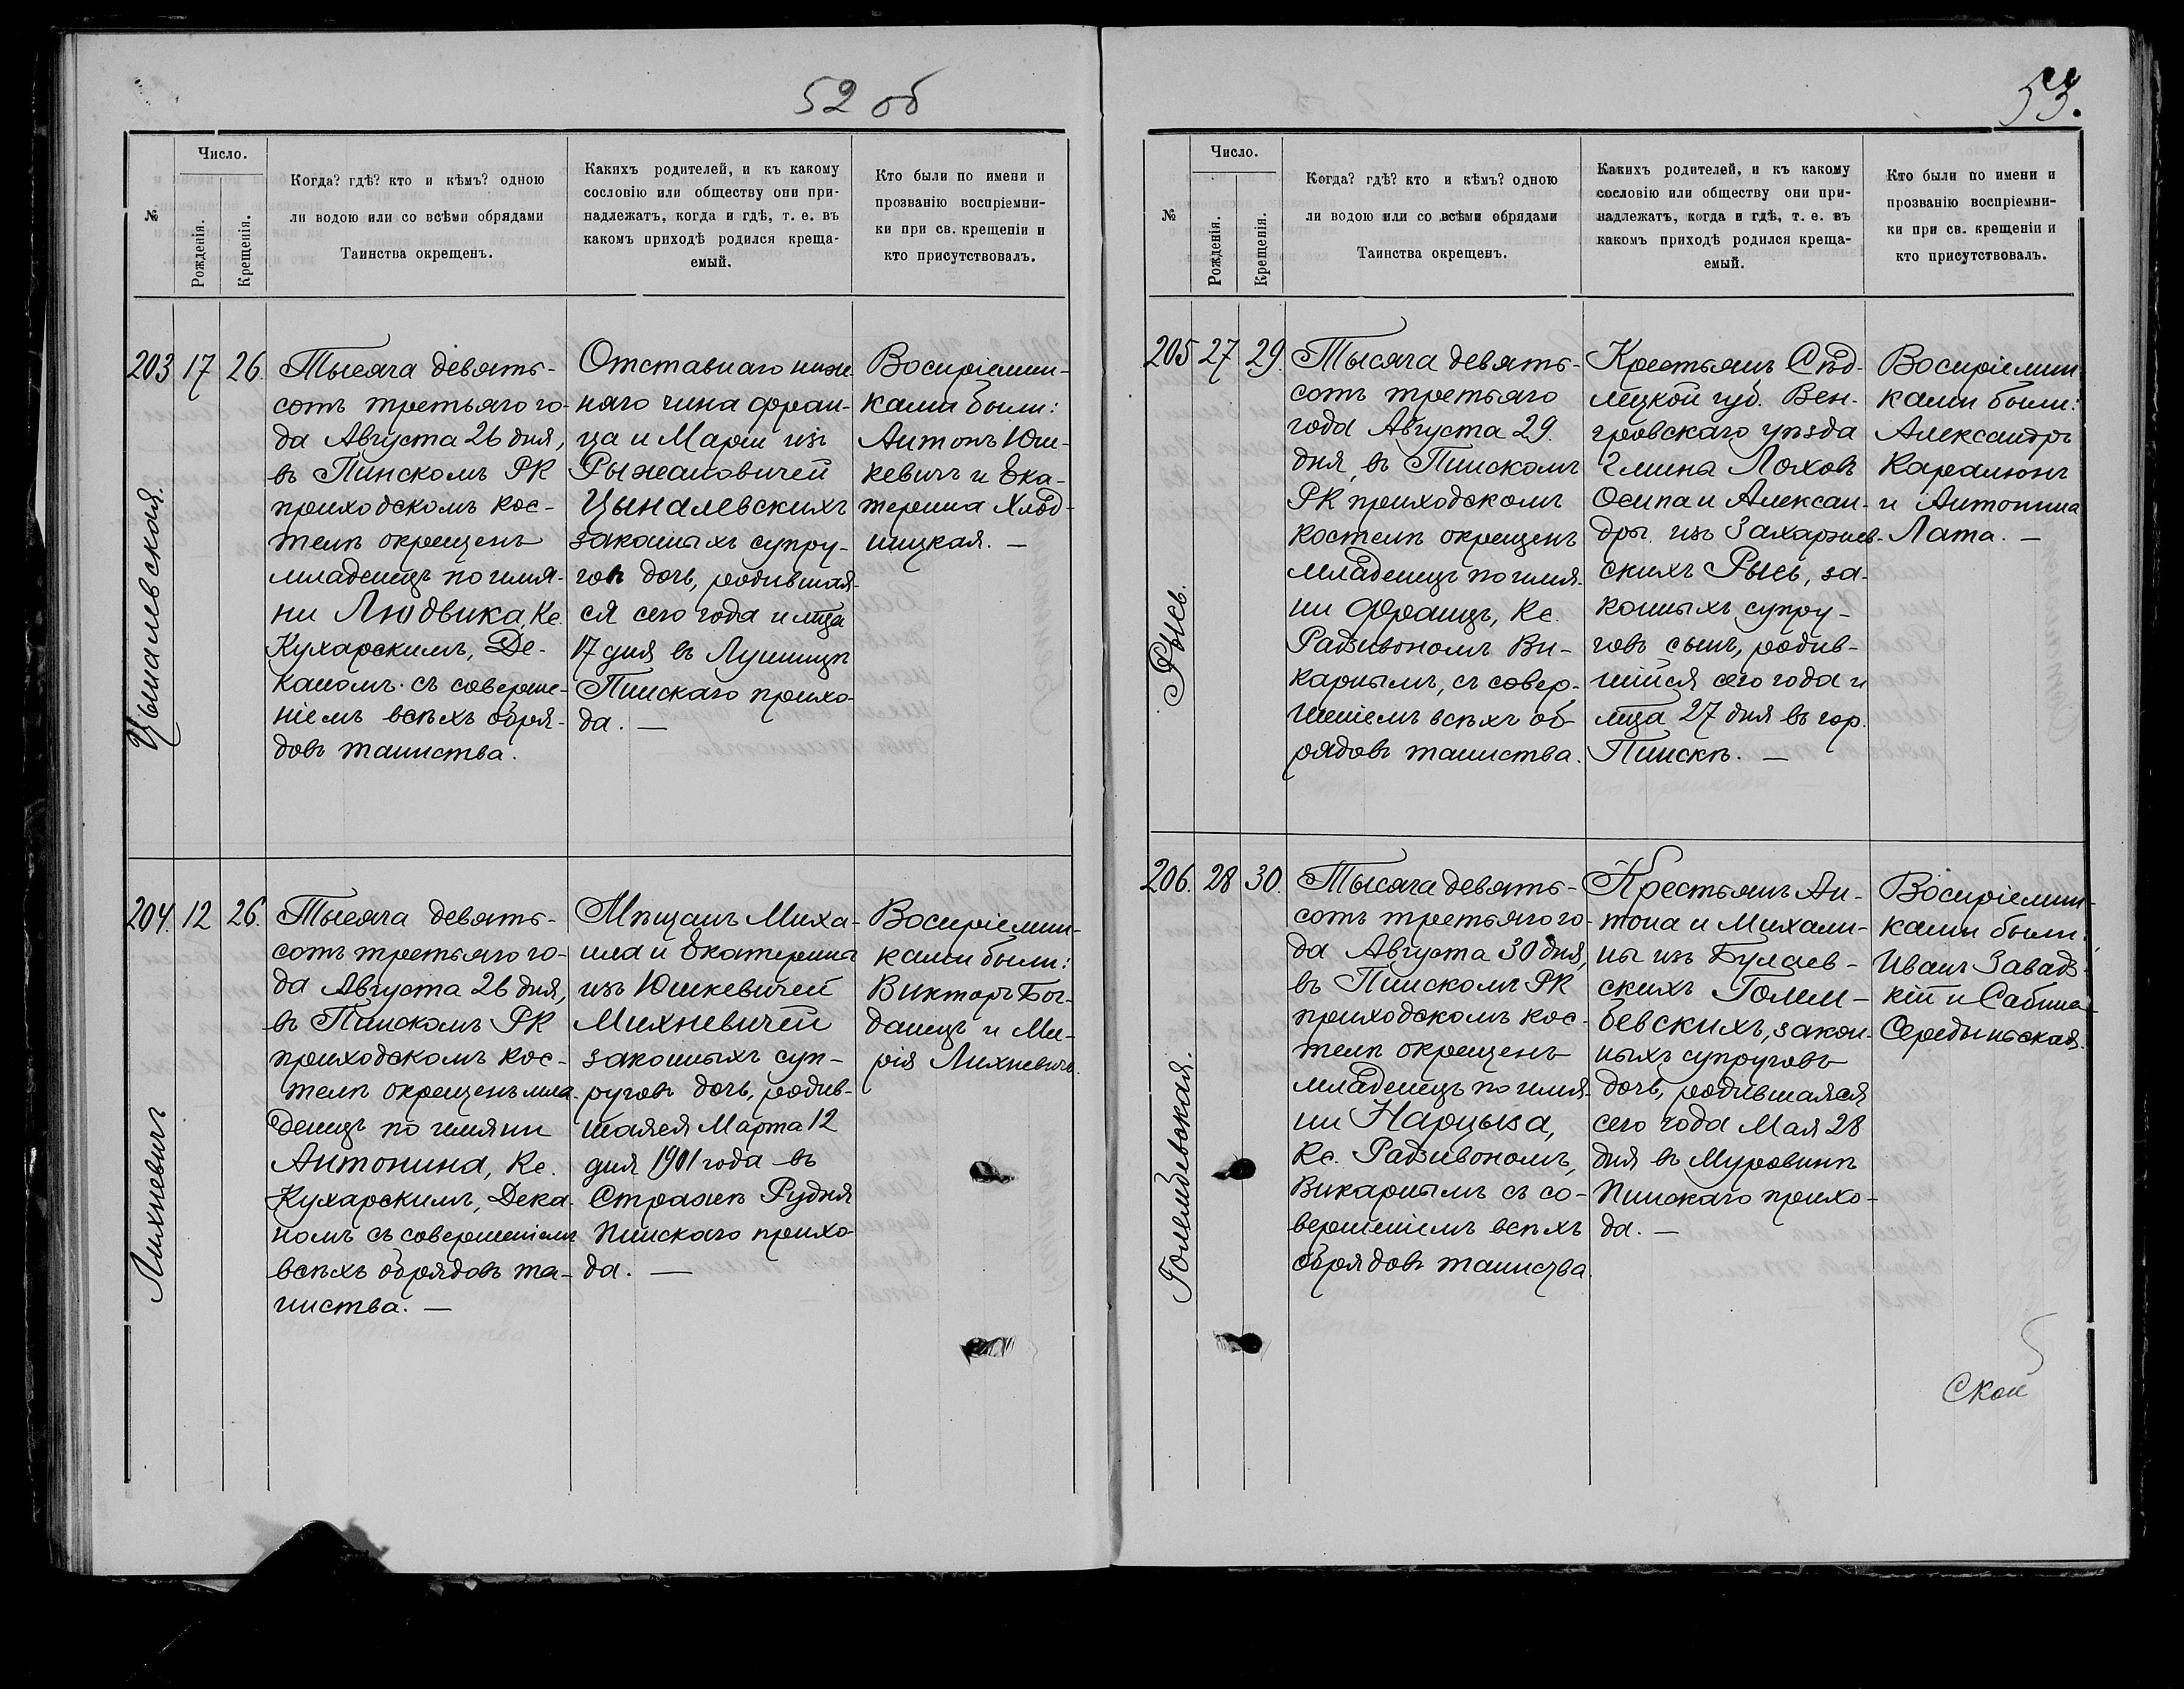 52 об
№
Число.
Рожденія.
Крещенія.
Когда? гдѣ? кто и кѣмъ? одною
ли водою или со всѣми обрядами
Таинства окрещенъ.
Какихъ родителей, и къ какому
сословію или обществу они при-
надлежатъ, когда и гдѣ, т. е. въ
какомъ приходѣ родился креща-
емый.
Кто были по имени и
прозванію воспріемни-
ки при св. крещеніи и
кто присутствовалъ.
Цыналевская.
203 17 26.
Тысяча девять-
сотъ третьяго го-
да Августа 26 дня,
въ Пинскомъ РК
приходскомъ кос-
телѣ окрещенъ
младенецъ по имя-
ни Людвика, Кс.
Кухарскимъ, Де-
каномъ съ соверше-
ніемъ всѣхъ обря-
довъ таинства.
Отставнаго ниж-
няго чина Фран-
ца и Маріи изъ
Рыжановичей
Цыналевскихъ
законыхъ супру-
говъ дочь, родившая-
ся сего года и мца
17 дня въ Лушицѣ
Пинскаго прихо-
да. —
Воспріемни-
ками были:
Антонъ Юш-
кевичъ и Ека-
терина Хлод-
ницкая. —
Лихневичъ
204. 12 26.
Тысяча девять-
сотъ третьяго го-
да Августа 26 дня,
въ Пинскомъ РК
приходскомъ кос-
телѣ окрещенъ мла-
денецъ по имяни
Антонина, Кс.
Кухарскимъ, Дека-
номъ съ совершеніемъ
всѣхъ обрядовъ та-
инства. —
Мѣщанъ Миха-
ила и Екатерины
изъ Юшкевичей
Михневичей
законныхъ суп-
руговъ дочь, родив-
шаяся Марта 12
дня 1901 года въ
Стражѣ Рудня
Пинскаго прихо-
да. —
Воспріемни-
ками были:
Викторъ Бог-
данецъ и Ма-
рія Лихневичъ.
53.
№
Число.
Рожденія.
Крещенія.
Когда? гдѣ? кто и кѣмъ? одною
ли водою или со всѣми обрядами
Таинства окрещенъ.
Какихъ родителей, и къ какому
сословію или обществу они при-
надлежатъ, когда и гдѣ, т. е. въ
какомъ приходѣ родился креща-
емый.
Кто были по имени и
прозванію воспріемни-
ки при св. крещеніи и
кто присутствовалъ.
Рысь.
205 27 29.
Тысяча девять-
сотъ третьяго
года Августа 29.
дня, въ Пинскомъ
РК приходскомъ
костелѣ окрещенъ
младенецъ по имя-
ни Францъ, Кс.
Радзивономъ Ви-
карнымъ, съ совер-
шеніемъ всѣхъ об-
рядовъ таинства.
Крестьянъ Сѣд-
лецкой губ. Вен-
гровскаго уѣзда
Гмина Лоховъ
Осипа и Алексан-
дры изъ Захаржев-
скихъ Рысь, за-
конныхъ супру-
говъ сынъ, родив-
шійся сего года и
мца 27 дня въ гор.
Пинскѣ. —
Воспріемни-
ками были:
Александръ
Каралюнъ
и Антонина
Лата. —
Голембевская.
206. 28 30.
Тысяча девять-
сотъ третьяго го-
да Августа 30 дня,
въ Пинскомъ РК
приходскомъ кос-
телѣ окрещенъ
младенецъ по имя-
ни Нарцыза,
Кс. Радзивономъ,
Викарнымъ съ со-
вершеніемъ всѣхъ
обрядовъ таинства.
Крестьянъ Ан-
тона и Михали-
ны изъ Булаев-
скихъ Голем-
бевскихъ, закон-
ныхъ супруговъ
дочь, родившаяся
сего года Мая 28
дня въ Муровинѣ
Пинскаго прихо-
да. —
Воспріемни-
ками были:
Иванъ Завадз-
кій и Сабина
Середыньская.